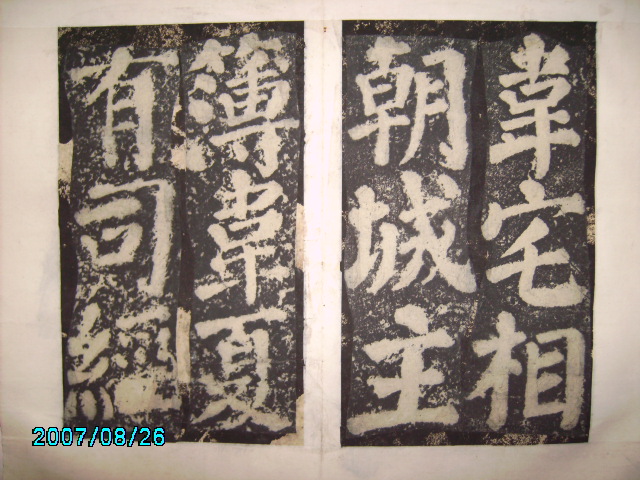 韋宅相
朝城主
簿韋夏
有司經
2007/08/26